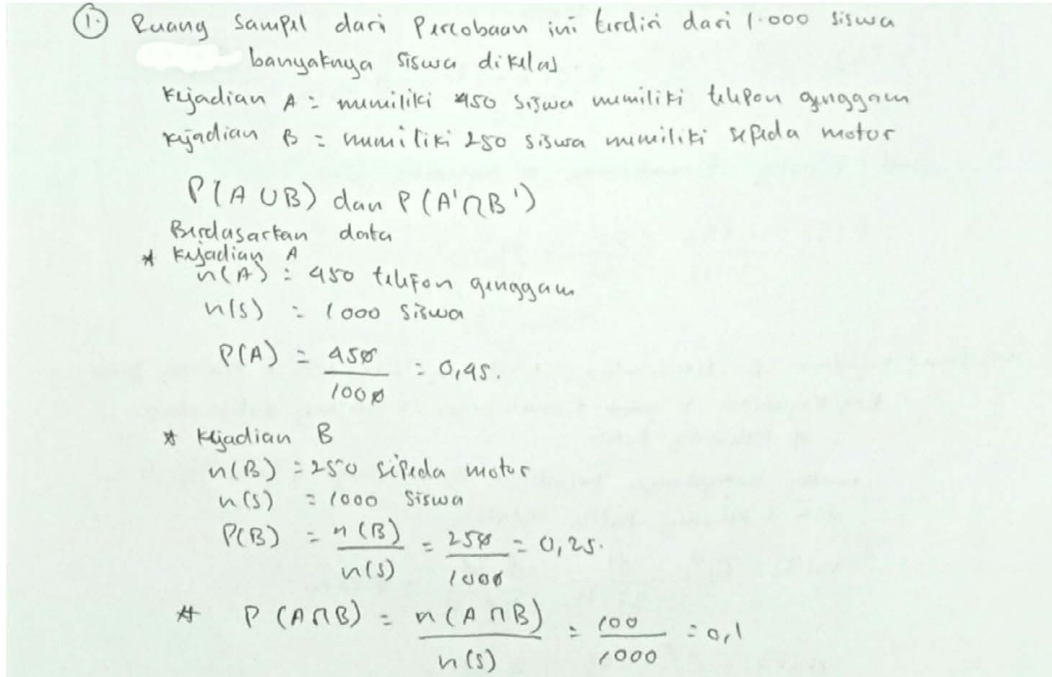 1. Ruang Sampel dari Percobaan ini terdiri dari 1.000 siswa
banyaknya siswa dikelas
Kejadian A = memiliki 450 siswa memiliki telepon genggam
Kejadian B = memiliki 250 siswa memiliki sepeda motor
P(A ∪ B) dan P(A' ∩ B')
Berdasarkan data
* Kejadian A
n(A) = 450 telefon genggam
n(s) = 1000 siswa
P(A) = 450/1000 = 0,45.
* Kejadian B
n(B) = 250 sepeda motor
n(s) = 1000 siswa
P(B) = n(B)/n(s) = 250/1000 = 0,25.
* P(A ∩ B) = n(A ∩ B)/n(s) = 100/1000 = 0,1